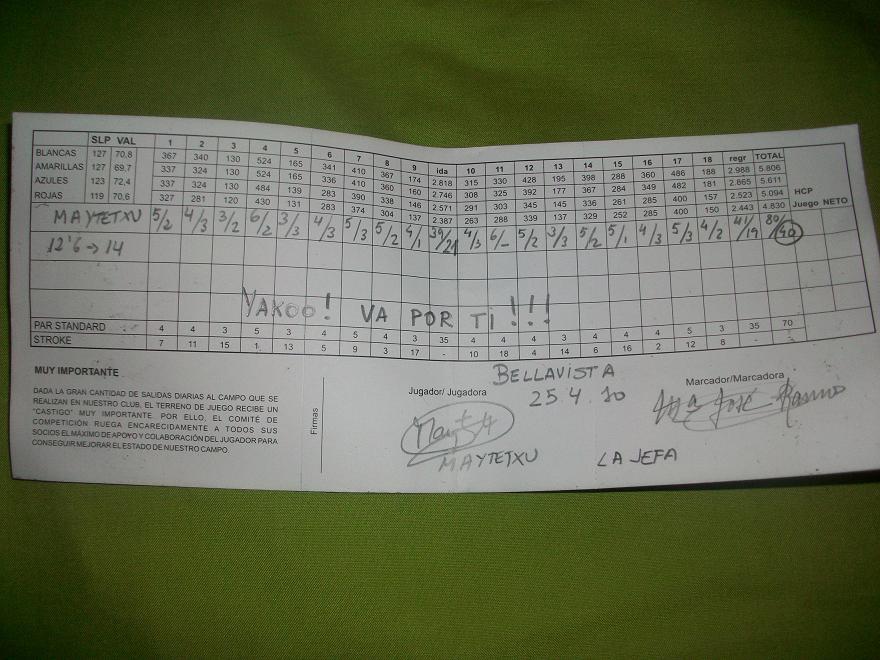 SLP VAL 1 2 3 4 5 6 7 8 9 ida 10 11 12 13 14 15 16 17 18 regr TOTAL
BLANCAS 127 70,8 367 340 130 524 165 341 410 367 174 2.818 315 330 428 195 398 288 360 486 188 2.988 5.806
AMARILLAS 127 69,7 337 324 130 524 165 336 410 360 160 2.746 308 325 392 177 367 284 349 482 181 2.865 5.611
AZULES 123 72,4 337 324 130 484 139 283 390 338 146 2.571 291 303 345 145 336 261 285 400 157 2.523 5.094
ROJAS 119 70,6 327 281 120 430 131 283 374 304 137 2.387 263 288 339 137 329 252 285 400 150 2.443 4.830
HCP
Juego NETO
MAYTETXU 5/2 4/3 3/2 6/2 3/3 4/3 5/3 5/2 4/1 39/21 4/3 6/- 5/2 3/3 5/2 5/1 4/3 5/3 4/2 41/19 80/40
12'6 → 14
YAKOO! VA POR TI!!!
PAR STANDARD 4 4 3 5 3 4 5 4 3 35 4 4 4 3 4 4 4 5 3 35 70
STROKE 7 11 15 1 13 5 9 3 17 - 10 18 4 14 6 16 2 12 8 -
MUY IMPORTANTE
DADA LA GRAN CANTIDAD DE SALIDAS DIARIAS AL CAMPO QUE SE
REALIZAN EN NUESTRO CLUB, EL TERRENO DE JUEGO RECIBE UN
"CASTIGO" MUY IMPORTANTE. POR ELLO, EL COMITÉ DE
COMPETICIÓN RUEGA ENCARECIDAMENTE A TODOS SUS
SOCIOS EL MÁXIMO DE APOYO Y COLABORACIÓN DEL JUGADOR PARA
CONSEGUIR MEJORAR EL ESTADO DE NUESTRO CAMPO.
Firmas
Jugador/ Jugadora
BELLAVISTA
25.4.10
MAYTETXU
Marcador/Marcadora
José
LA JEFA